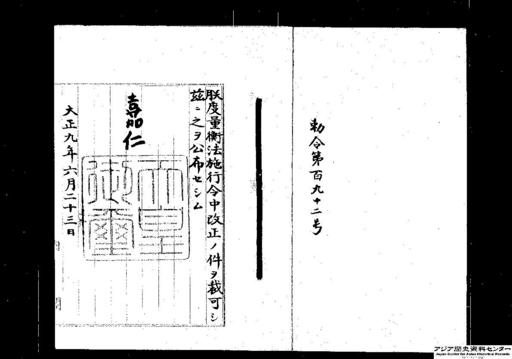 勅令第百九十二号
朕度量衡法施行令中改正ノ件ヲ裁可シ
茲ニ之ヲ公布セシム
嘉仁
天皇
御璽
大正九年六月二十三日
アジア歴史資料センター
Japan Center for Asian Historical Records